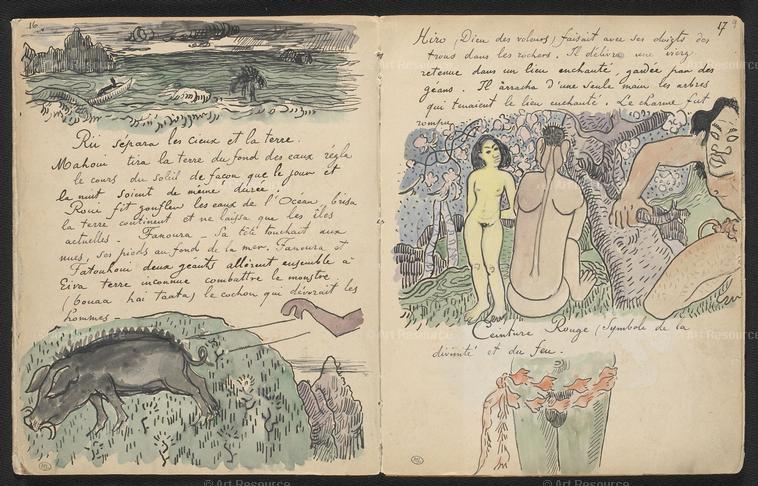 16
Rii separa les cieux et la terre.
Mahoui tira la terre du fond des eaux régla
le cours du soleil de façon que le jour et
la nuit soient de même durée.
Roüe fit gonfler les eaux de l'Ocean, brisa
la terre continent et ne laissa que les iles
actuelles - Fanoura - Sa tête touchait aux
nues, ses pieds au fond de la mer. Fanoura et
Fatouhoui deux geants allèrent ensemble à
Eiva terre inconnue combattre le monstre
(bouaa hai taata) le cochon qui dévorait les
hommes -
17
Hiro (Dieu des voleurs) faisait avec ses doigts des
trous dans les rochers. Il délivra une vierge
retenue dans un lieu enchanté, gardée par des
géans. Il arracha d'une seule main les arbres
qui tenaient le lieu enchanté. Le charme fut
rompu
Ceinture Rouge (Symbole de la
divinité et du feu.
© Art Resource